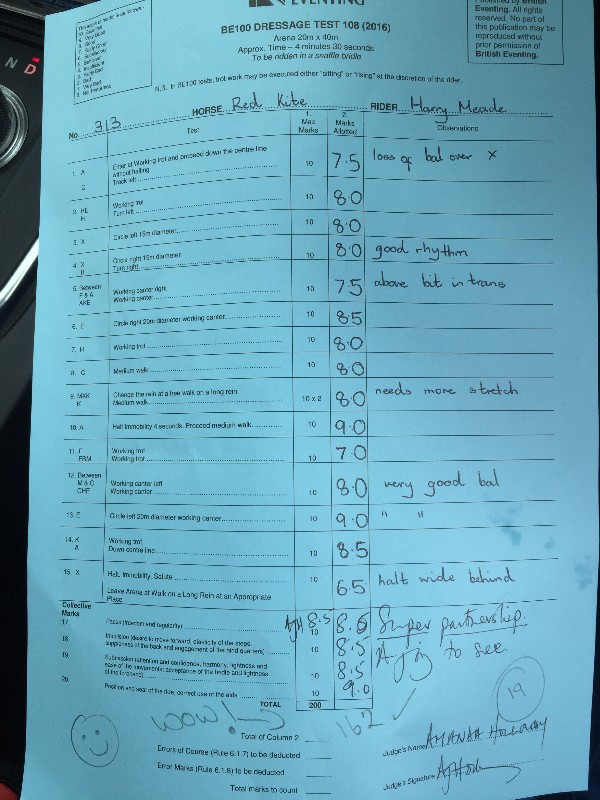 EVENTING
BE100 DRESSAGE TEST 108 (2016)
Arena 20m x 40m
Approx. Time – 4 minutes 30 seconds
To be ridden in a snaffle bridle
Eventing. All rights
reserved. No part of
this publication may be
reproduced without
prior permission of
British Eventing.
N D
N.B. In BE100 tests, trot work may be executed either "sitting" or "rising" at the discretion of the rider.
No. 313 HORSE Red Kite RIDER Harry Meade
Test 1. Max Marks 2. Marks Allotted Observations
1. A Enter at Working trot and proceed down the centre line without halting
C Track left 10 7.5 loss of bal over X
2. HE Working trot
Turn left 10 8.0
3. X Circle left 15m diameter 10 8.0
4. X Circle right 15m diameter
Turn right 10 8.0 good rhythm
5. Between F & A Working canter right
AKE Working canter 10 7.5 above bit in trans
6. E Circle right 20m diameter working canter 10 8.5
7. H Working trot 10 8.0
8. C Medium walk 10 8.0
9. MXK Change the rein at a free walk on a long rein
K Medium walk 10 x 2 8.0 needs more stretch
10. A Halt Immobility 4 seconds. Proceed medium walk 10 9.0
11. F Working trot
FBM Working trot 10 7.0
12. Between M & C Working canter left
CHF Working canter 10 8.0 very good bal
13. E Circle left 20m diameter working canter 10 9.0 " "
14. K Working trot
A Down centre line 10 8.5
15. X Halt. Immobility. Salute 10 6.5 halt wide behind
Leave Arena at Walk on a Long Rein at an Appropriate Place
Collective Marks
17. Paces (freedom and regularity) AJH 8.5 10 8.5 Super partnership.
18. Impulsion (desire to move forward, elasticity of the steps, suppleness of the back and engagement of the hind quarters) 10 8.5 A joy to see
19. Submission (attention and confidence, harmony, lightness and ease of the movements; acceptance of the bridle and lightness of the forehand) 10 8.5
20. Position and seat of the rider, correct use of the aids 10 9.0
TOTAL 200
19
WOW!
Total of Column 2 162
Errors of Course (Rule 6.1.7) to be deducted
Error Marks (Rule 6.1.8) to be deducted
Total marks to count
Judge's Name AMANDA
Judge's Signature